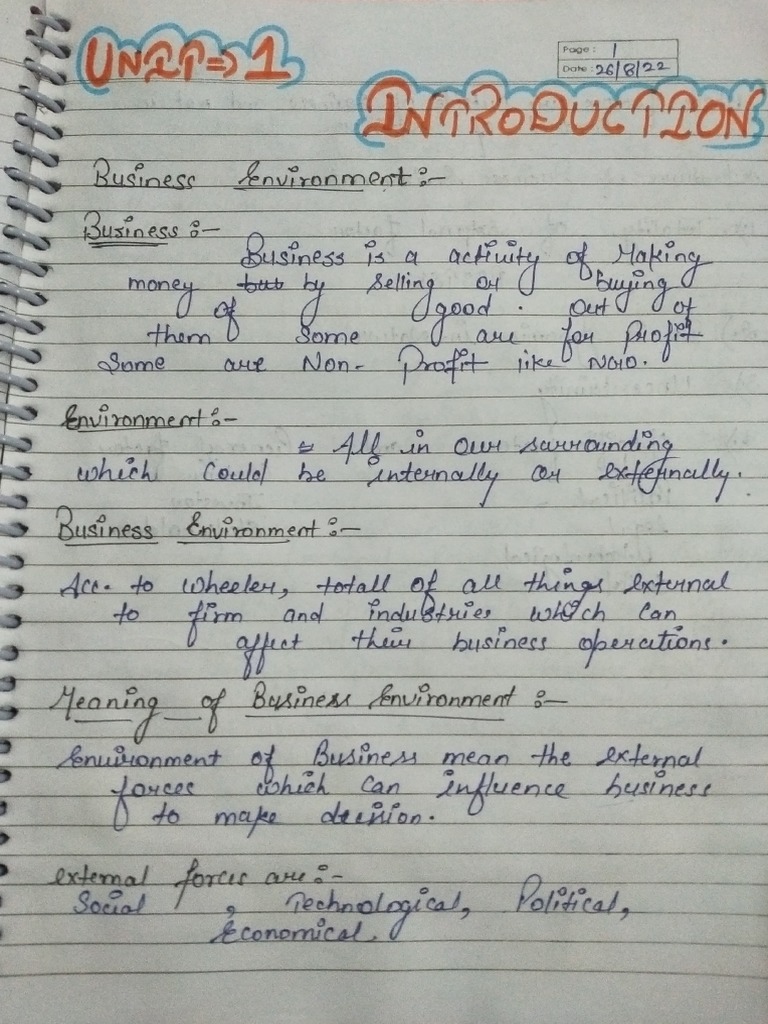 UNIT⇒1
Page: 1
Date: 26/8/22
INTRODUCTION
Business Environment :-
Business :-
Business is a activity of Making
money but by selling or buying
of good. Out of
them some are for Profit
Some are Non- Profit like NGO.
Environment :-
= All in our surrounding
which could be internally or externally.
Business Environment :-
Acc. to wheeler, totall of all things external
to firm and industries which can
affect their business operations.
Meaning of Business Environment :-
Environment of Business mean the external
forces which can influence business
to make decision.
external forces are :-
Social, Technological, Political,
Economical.